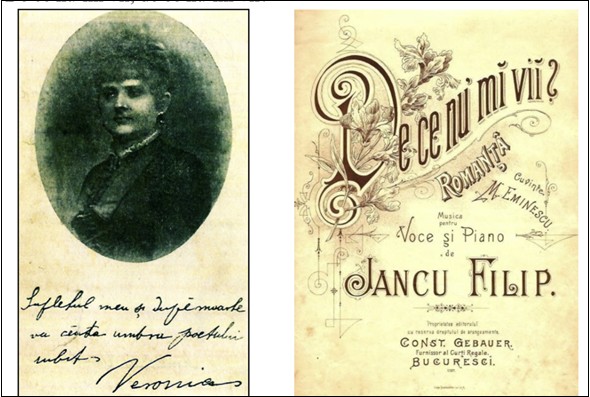 Sufletul meu și după moarte
va căuta umbra poetului
iubit
Veronica
De ce nu' mĭ viĭ?
ROMANȚĂ
Cuvinte
M. EMINESCU
Musica
pentru
Voce și Piano
de
JANCU FILIP.
Proprietatea editorului
cu reserva dreptului de aranjamente.
CONST. GEBAUER.
Furnisor al Curți Regale.
BUCURESCI.